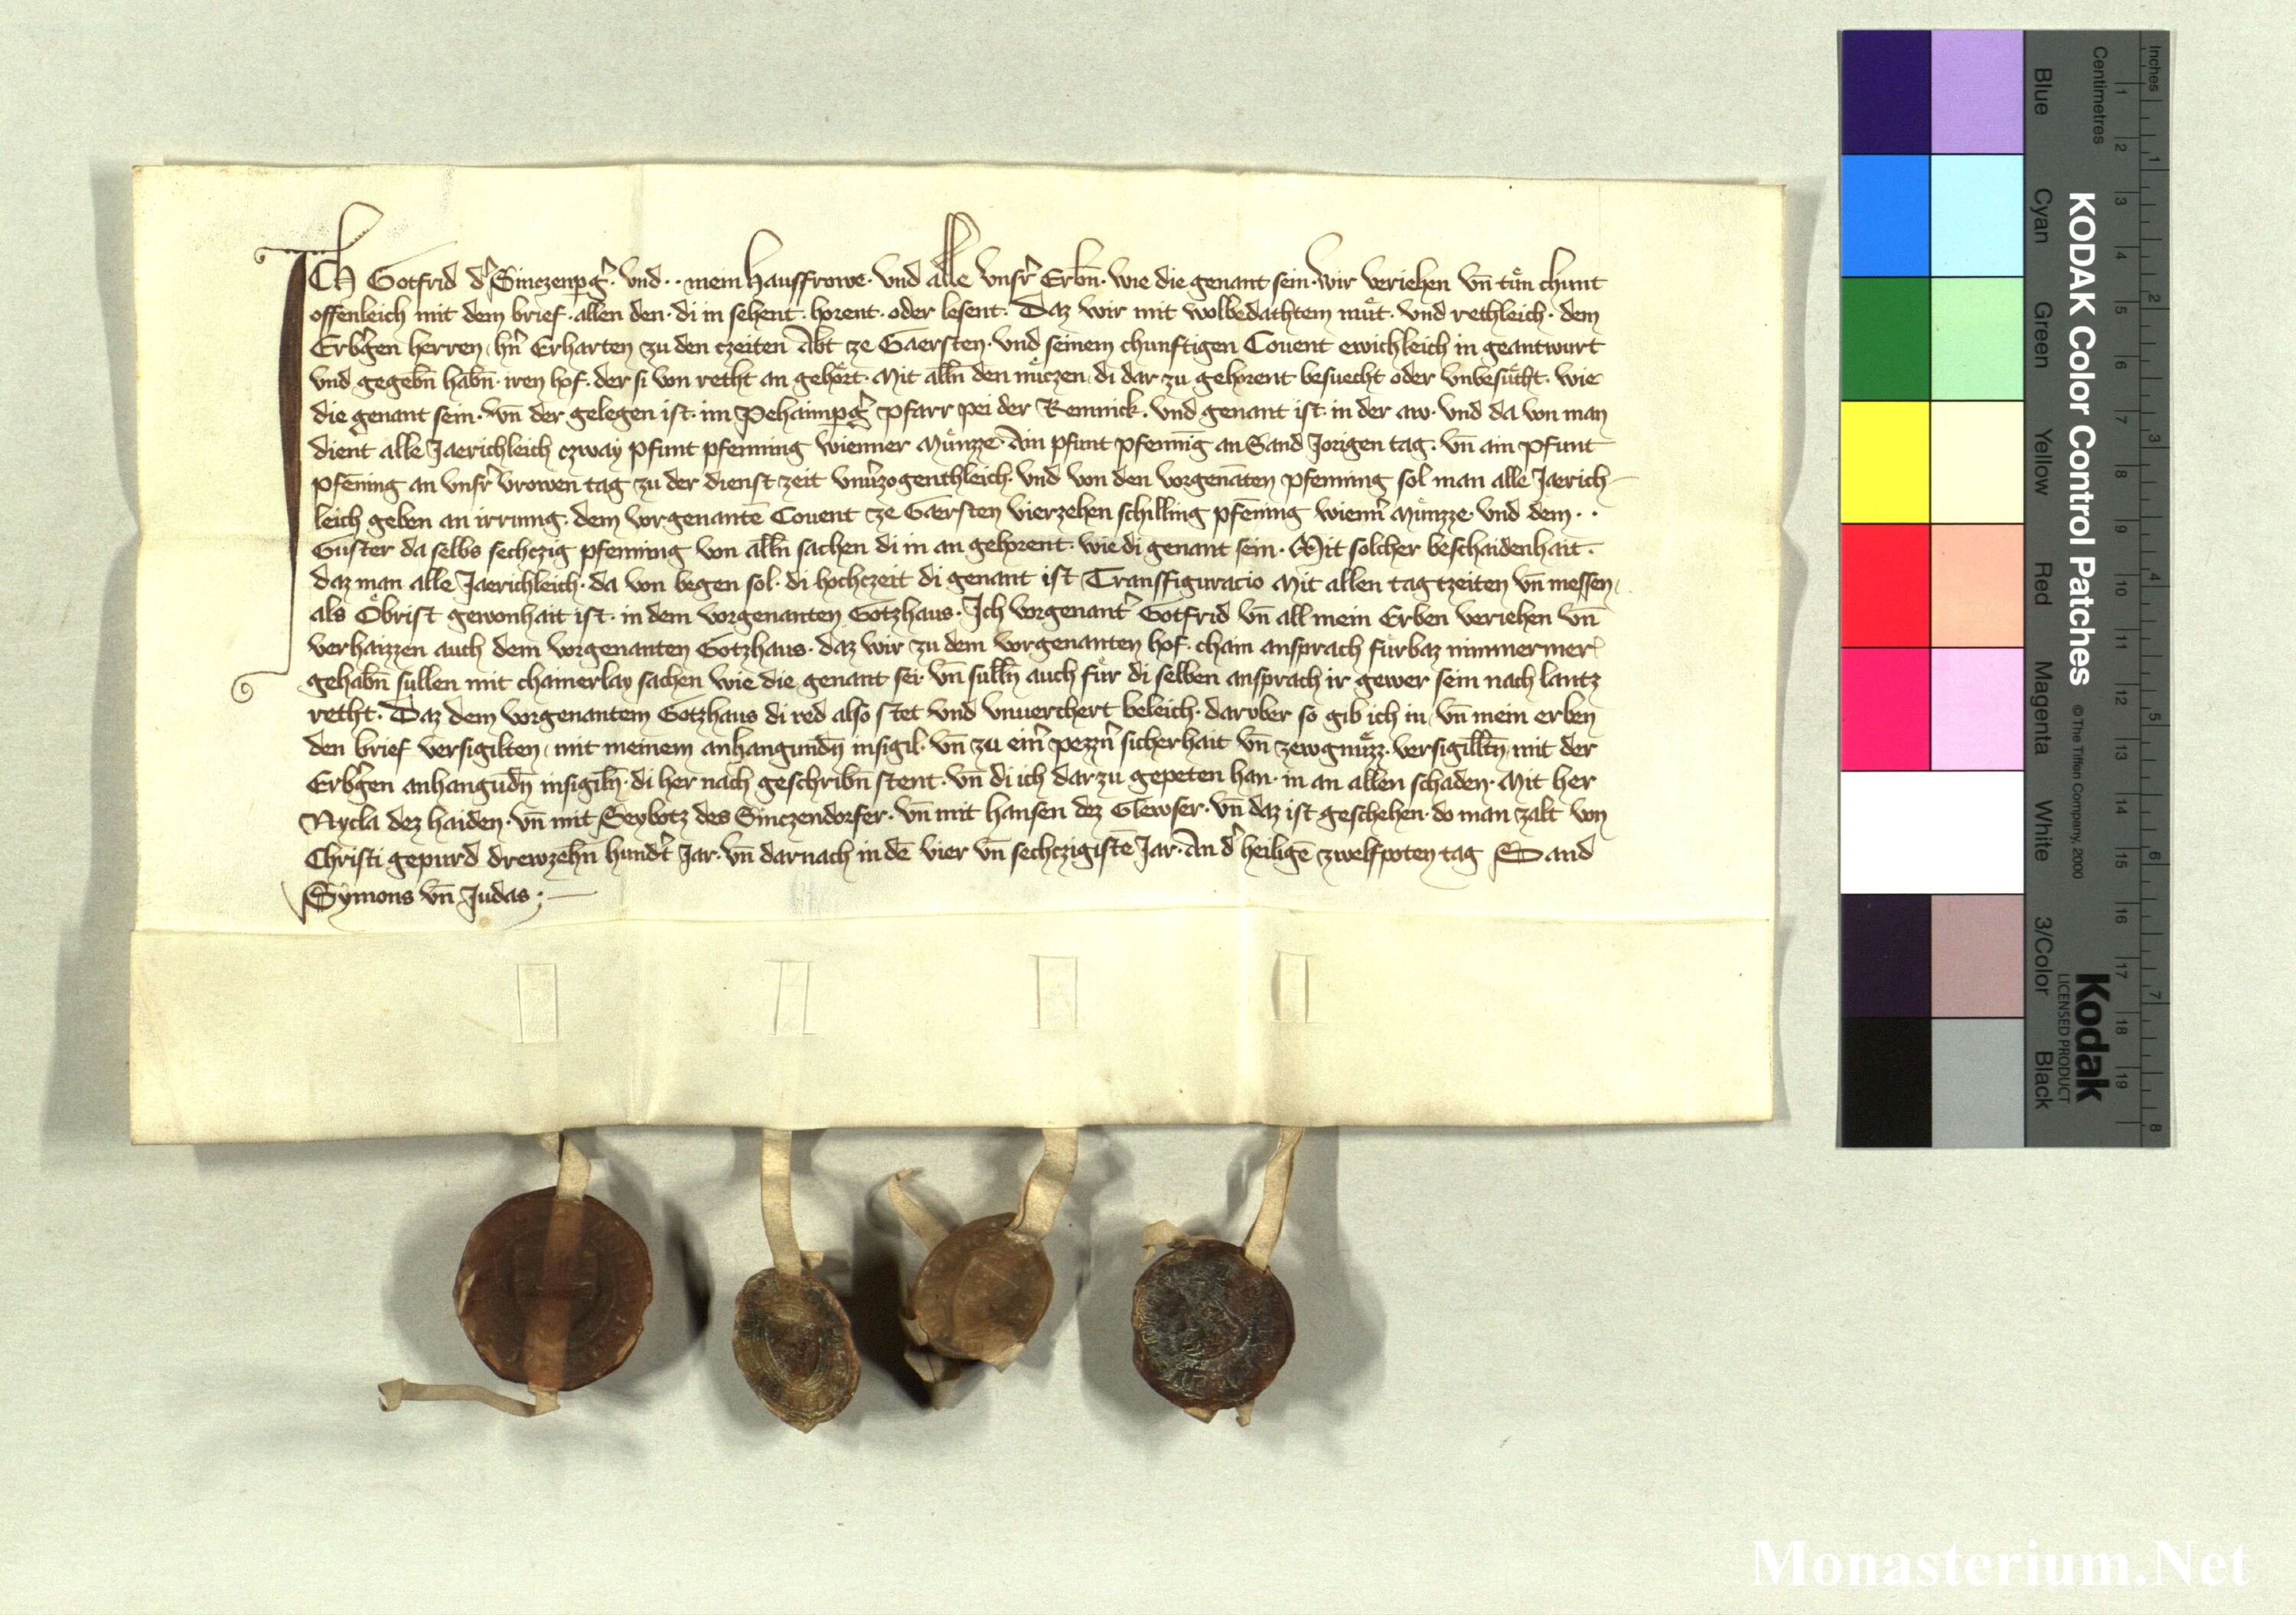 ICH Gotfrid d Sinczenpg̃. vnd .. mein hausfrowe. vnd alle vnsr̃ Erbn̄. wie die genant sein. wir veriehen vn̄ tuͤn chunt
offenleich mit dem brief. allen den. di in sehent. horent. oder lesent. Daz wir mit wolbedathtem muͤt. vnd rethleich. dem
Erbg̃en herren hn̄ Erharten zu den czeiten Abt ze Gaersten. vnd seinem chunftigen Couent ewichleich in geantwurt
vnd gegebn̄ habn̄. iren hof. der si von retht an gehoͤrt. Mit alln̄ den nuͤczen di dar zu gehorent besuecht oder vnbesuͤtht. wie
die genant sein. vn̄ der gelegen ist. im Pehaimpg̃ pfarr pei der Remnick. vnd genant ist. in der aw. vnd da von man
dient alle Jaerichleich czway pfunt pfenning wienner Muͤnzze. Ain pfunt pfenning an Sand Jorigen tag. vn̄ ain pfunt
pfēning an vnsr̃ vrowen tag zu der dienst zeit vnũzogenthleich. vnd von den vorgenāten pfenning sol man alle Jaerich
leich geben an irrung. dem vorgenantē Couent ze Gaersten vierzehen schilling pfēning wienn̄ Muͤnzze. vnd dem ..
Guster da selbs sechczig pfenning von alln̄ sachen di in an gehorent. wie di genant sein. Mit solcher beschaidenhait.
daz man alle Jaerichleich. da von begen sol. di hochczeit di genant ist Transffiguracio Mit allen tagtzeiten vn̄ messen,
als Oͤbrist gewonhait ist. in dem vorgenanten Gotzhaus. Ich vorgenant̃ Gotfrid vn̄ all mein Erben veriehen vn̄
verhaizzen auch dem vorgenanten Gotzhaus. daz wir zu dem vorgenanten hof. chain ansprach fuͤrbaz nimmermer
gehabn̄ suͤllen mit chainerlay sachen wie die genant sei. vn̄ sulln̄ auch fuͤr di selben ansprach ir gewer sein nach lantz
retht. Daz dem vorgenantem Gotzhaus di red also stet vnd vnuerchert beleich. darvber so gib ich in vn̄ mein erben
den brief versigilten mit meinem anhangundn̄ insigil. vn̄ zu ein̄ pezzn̄ sicherhait vn̄ zewgnuͤzz. versigilltn̄ mit der
Erbg̃en anhangūdn̄ insigiln̄. di her nach geschribn̄ stent. vn̄ di ich dar zu gepeten han. in an allen schaden. Mit her
Nycla dez haiden. vn̄ mit Seybotz des Sinczendorfer. vn̄ mit hansen dez Glewser. vn̄ daz ist geschehen. do man zalt von
Christi gepurd drewzehn̄ hundt̃ Jar. vn̄ darnach in dē vier vn̄ sechczigistē Jar. An d̃ heiligē zwelfpoten tag Sand
Symons vn̄ Judas ;
KODAK Color Control Patches
© The Tiffen Company, 2000
Kodak
LICENSED PRODUCT
Inches
1 2 3 4 5 6 7 8
Centimetres
1 2 3 4 5 6 7 8 9 10 11 12 13 14 15 16 17 18 19
Blue
Cyan
Green
Yellow
Red
Magenta
White
3/Color
Black
Monasterium.Net